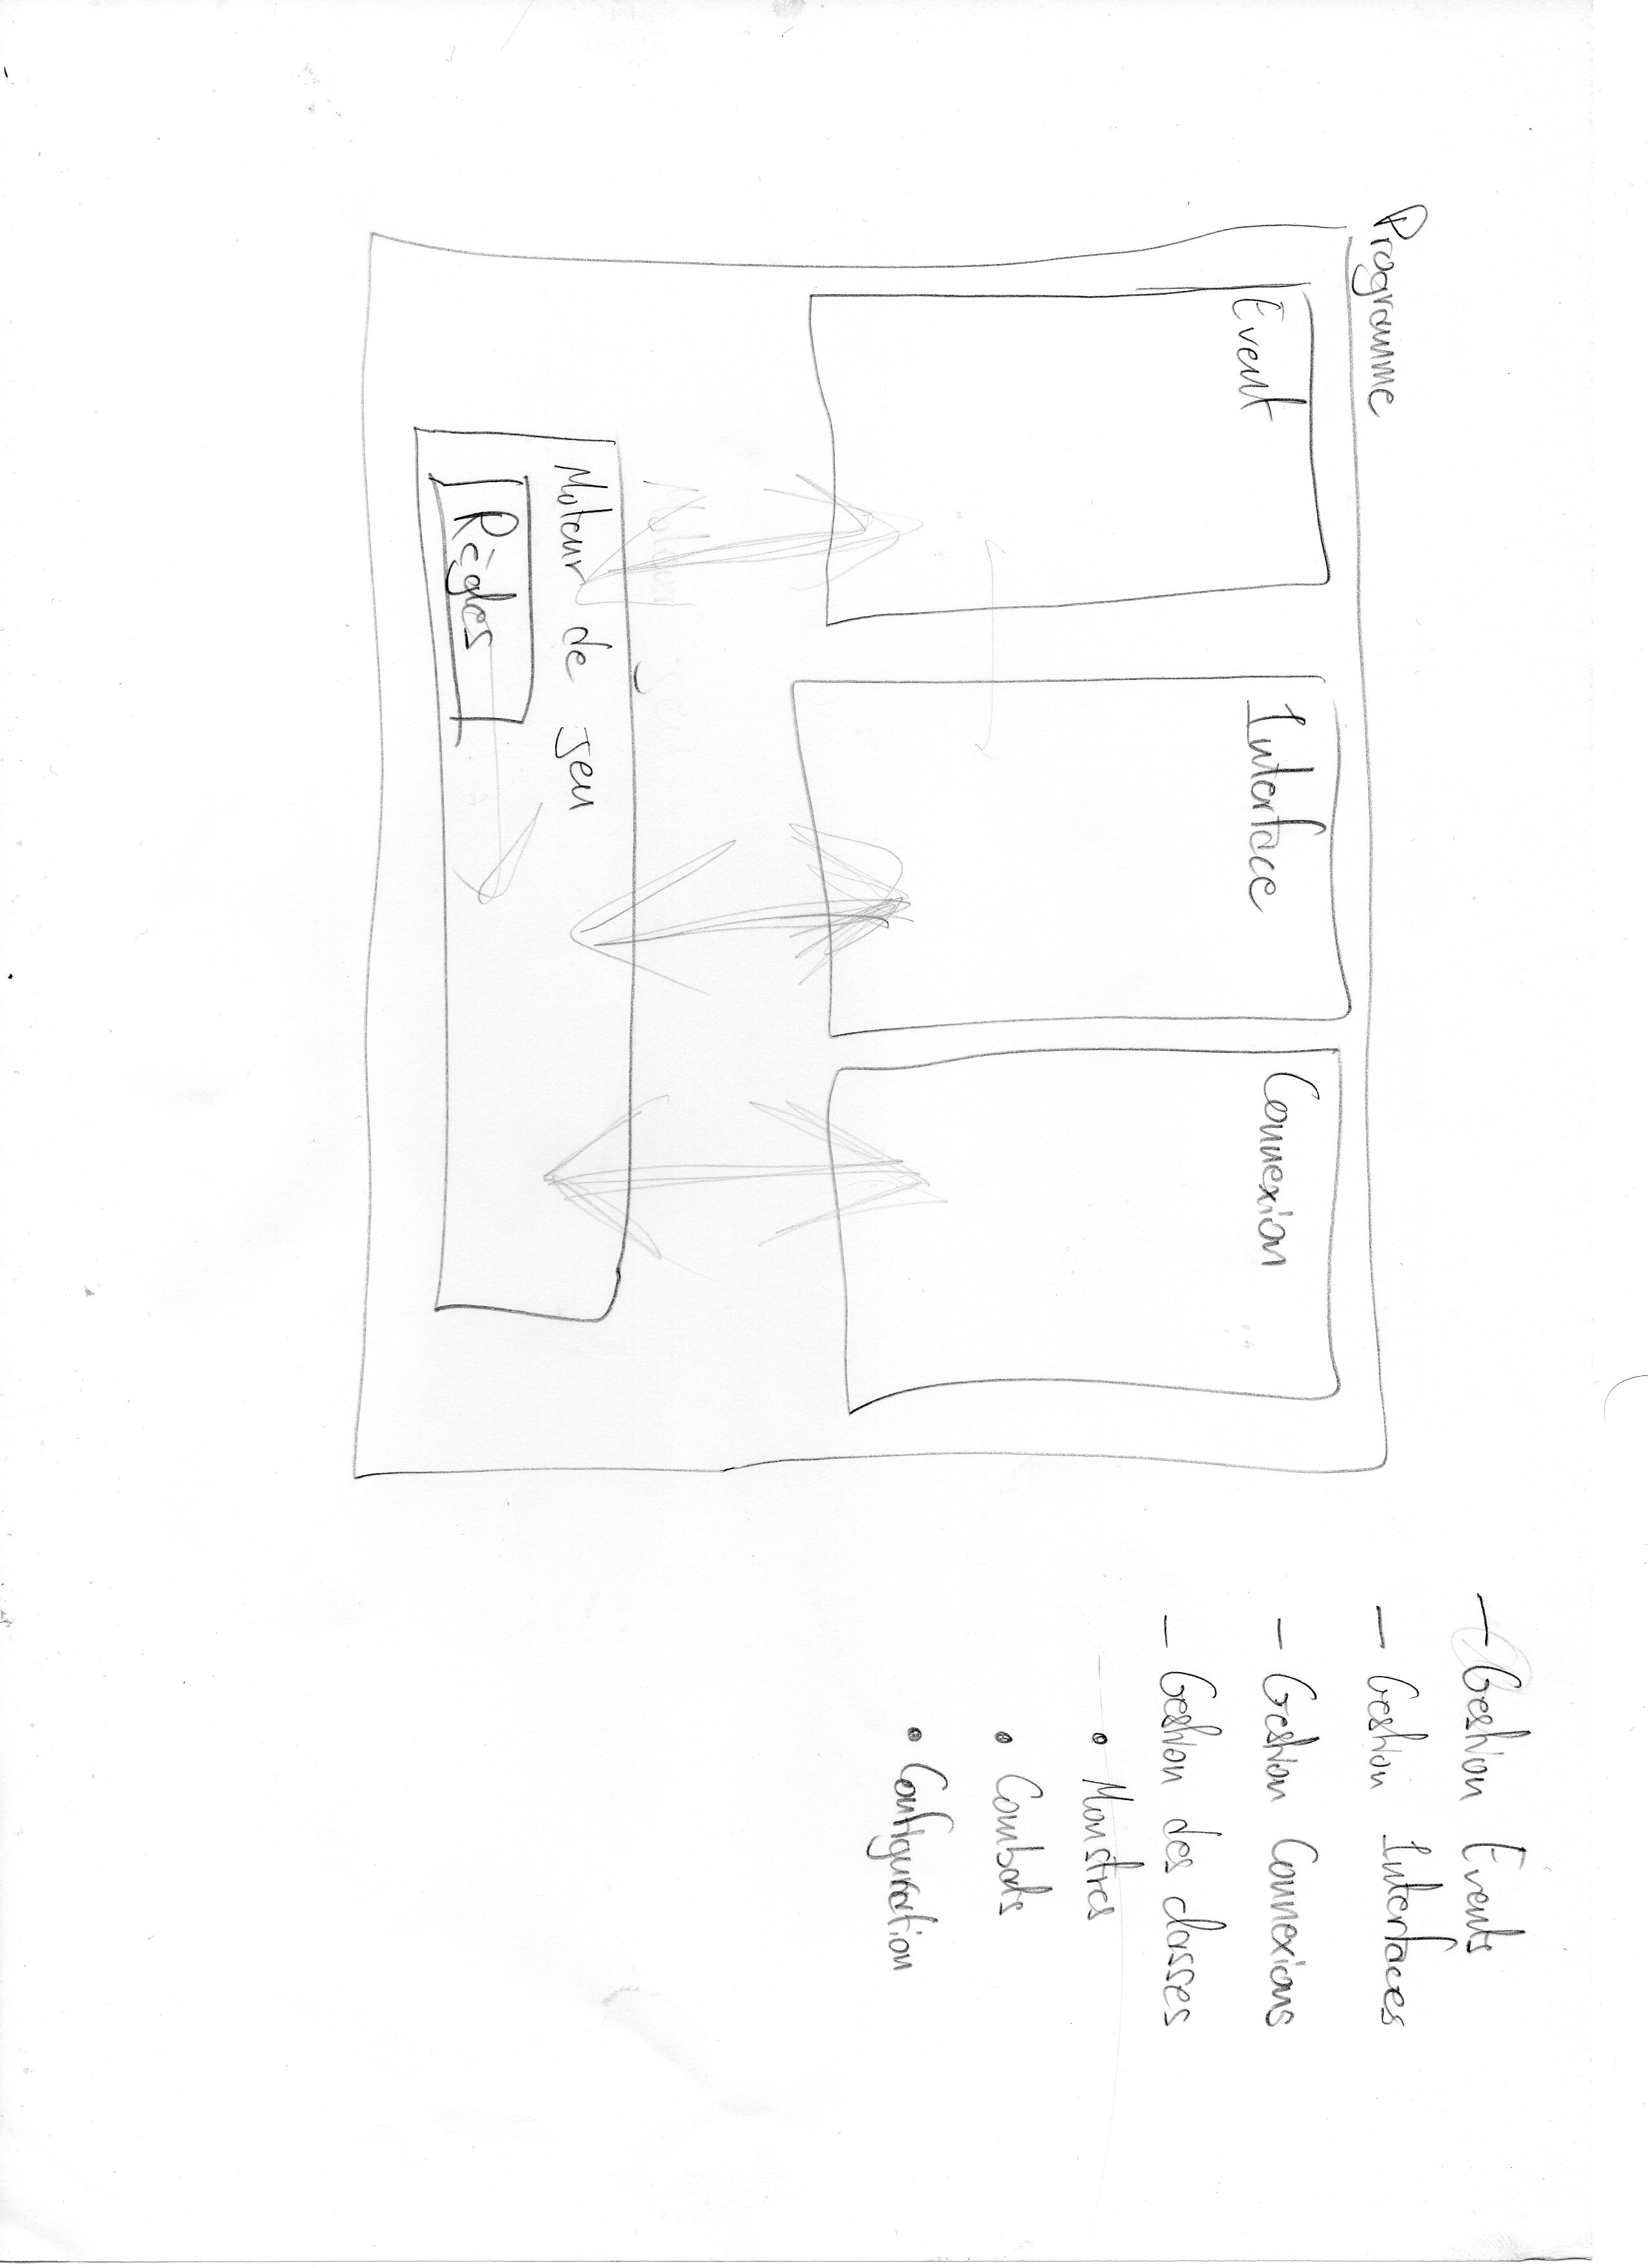 Programme
Event
Interface
Connexion
Moteur de jeu
Règles
- Gestion Events
- Gestion Interfaces
- Gestion Connexions
- Gestion des classes
• Monstres
• Combats
• Configuration